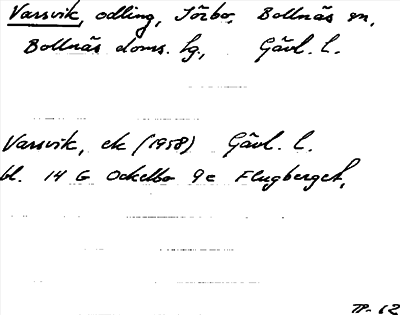 Varsvik, odling, Törbo, Bollnäs sn,
Bollnäs doms. hg., Gävl. l.
Varsvik, ek (1958) Gävl. l.
bl. 14 G Ockelbo 9e Flugberget,
TP-62